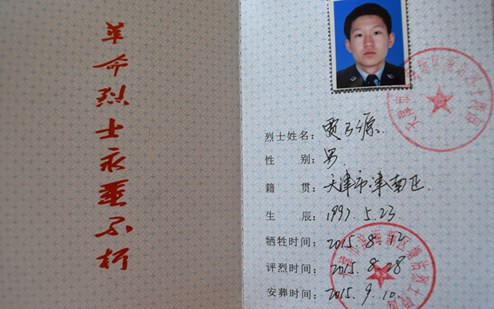 革命烈士永垂不朽
烈士姓名: 贾 源
性 别: 男
籍 贯: 天津市津南区
生 辰: 1997.5.23
牺牲时间: 2015.8.12
评烈时间: 2015.8.28
安葬时间: 2015.9.10